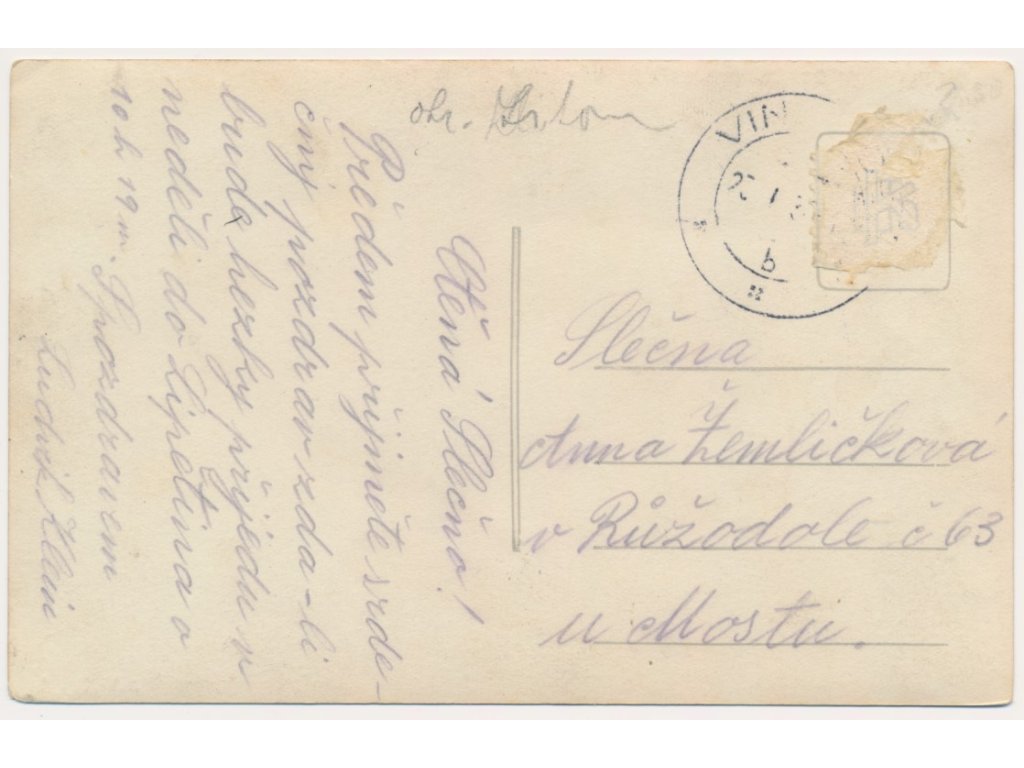 Ctěná Slečno!
Předem přijměte srde-
čný pozdrav zda-li
bude hezky přijedu v
neděli do Lipětína o
10 h 19 m. S pozdravem
Ludvík Klein
okr.
VIN
b
Slečna
Anna Žemličková
v Růžodole č 63
u Mostu.